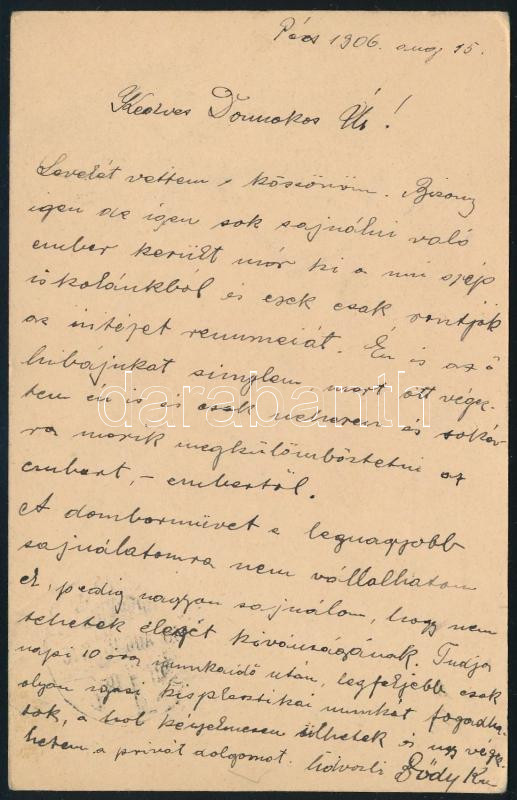 Pécs 1906. aug 15.
Kedves Domokos Úr!
Levelét vettem s köszönöm. Bizony
igen de igen sok sajnálni való
ember került már ki a mi szép
iskolánkból és ezek csak rontják
az intézet renuméiát. Én is az ő
hibájukat sinylem, mert ott végez-
tem én is és csak nehezen és sokár-
ra merik megkülömböztetni az
embert, - embertöl.
A domborművet a legnagyobb
sajnálatomra nem vállalhatom
el, pedig nagyon sajnálom, hogy nem
tehetek eleget kivánságának. Tudja
napi 10 óra munkaidő után, legfeljebb csak
olyan rajzi kisplastikai munkát fogadha-
tok, a hol kényelmesen ülhetek és ugy végez-
hetem a privát dolgomat. Üdvözli Gödy
darabanth.com